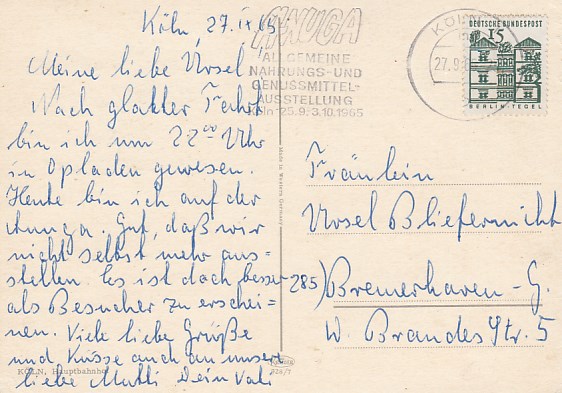 Köln, 27.IX.65
Meine liebe Ursel
Nach glatter Fahrt
bin ich um 22⁰⁰ Uhr
in Opladen gewesen.
Heute bin ich auf der
Anuga. Gut, daß wir
nicht selbst mehr aus-
stellen. Es ist doch besser
als Besucher zu erschei=
nen. Viele liebe Grüße
und Küsse auch an unsere
liebe Mutti Dein Vati
KÖLN, Hauptbahnhof
ANUGA
ALLGEMEINE
NAHRUNGS-UND
GENUSSMITTEL-
AUSSTELLUNG
Köln 25.9.-3.10.1965
KÖLN
27.9.
DEUTSCHE BUNDESPOST
15
BERLIN-TEGEL
Made in Western Germany
Fräulein
Ursel Bliefernicht
285) Bremerhaven-G.
W. Brandes Str. 5